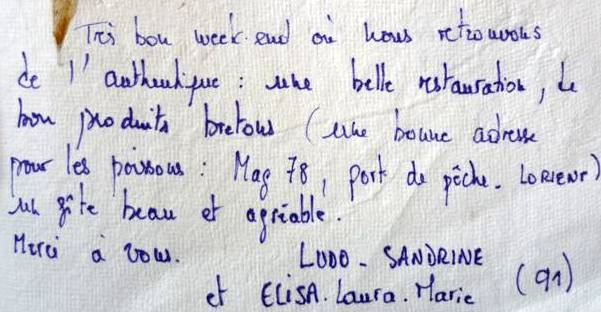 Très bon week-end où nous retrouvons
de l'authentique : une belle restauration, de
bon produits bretons (une bonne adresse
pour les poissons : Mag 78, port de pêche. LORIENT)
un gîte beau et agréable.
Merci à vous. LUDO - SANDRINE
et ELISA. Laura. Marie (91)